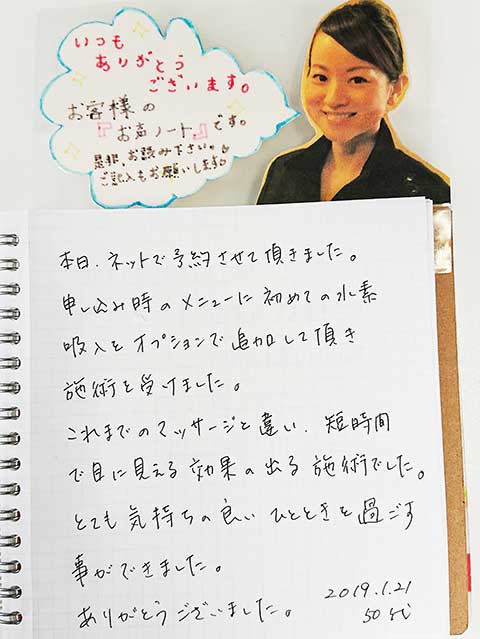 いつも
ありがとう
ございます。
お客様の
『お声ノート』です。
是非、お読み下さい。
ご記入もお願いします。
本日、ネットで予約させて頂きました。
申し込み時のメニューに初めての水素
吸入をオプションで追加して頂き
施術を受けました。
これまでのマッサージと違い、短時間
で目に見える効果の出る施術でした。
とても気持ちの良いひとときを過ごす
事ができました。
ありがとうございました。
2019.1.21
50代